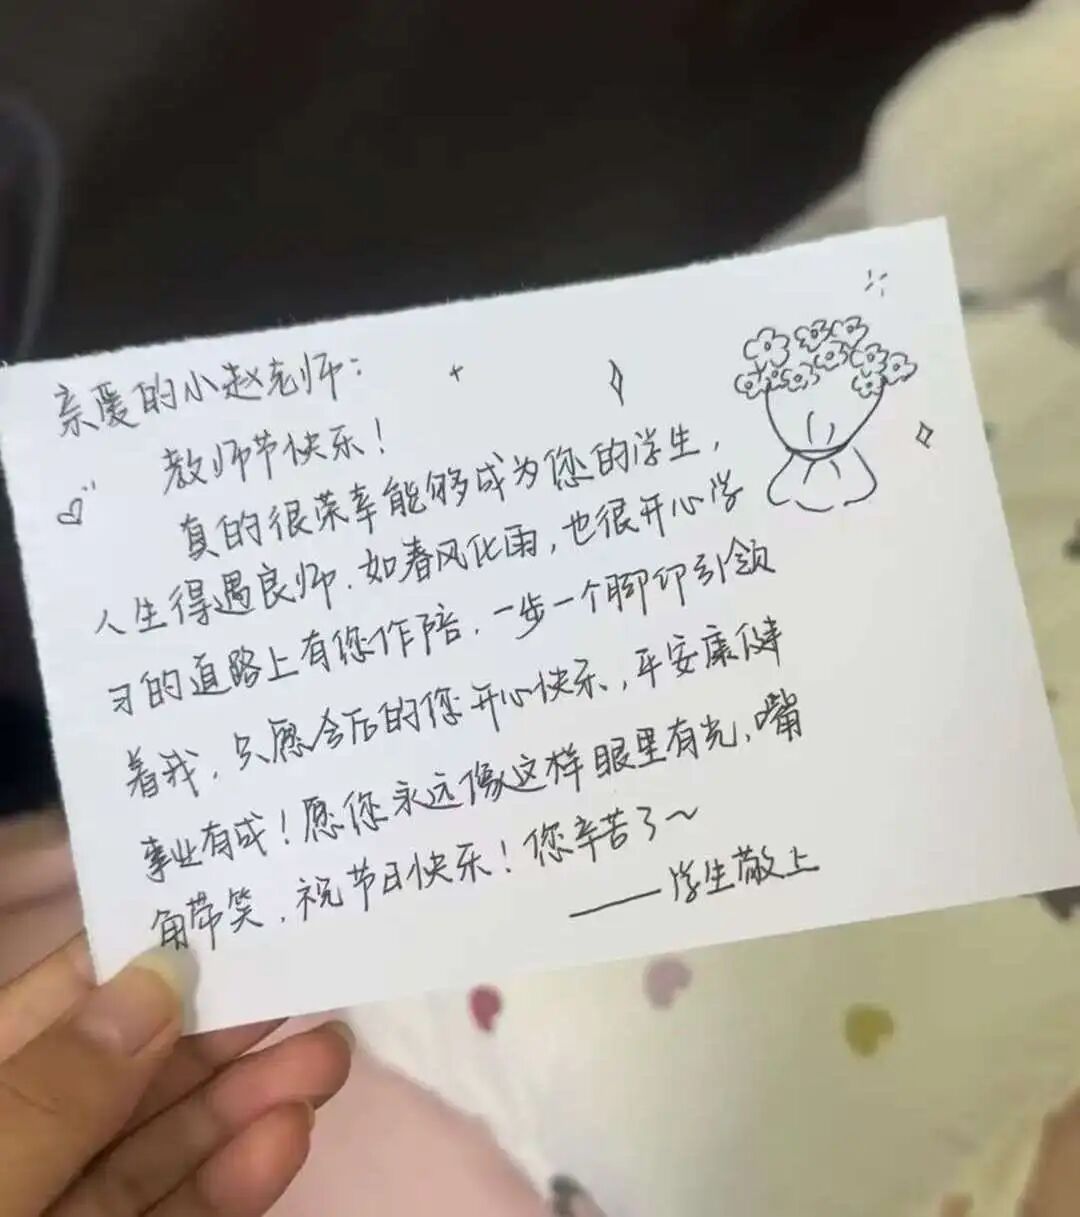 亲爱的小赵老师：
教师节快乐！
真的很荣幸能够成为您的学生，
人生得遇良师，如春风化雨，也很开心学
习的道路上有您作陪，一步一个脚印引领
着我，只愿今后的您开心快乐，平安康健
事业有成！愿您永远像这样眼里有光，嘴
角带笑，祝节日快乐！您辛苦了～
——学生敬上